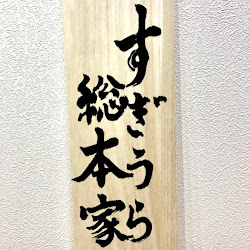 すぎうら
総本家